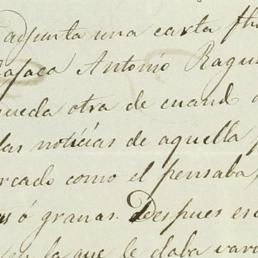 adjunta una carta fh
Oajaca Antonio Ragu
queda otra de cuando
las noticias de aquella p
rcado como el pensaba,
ó granas. Despues es
la que le daba var